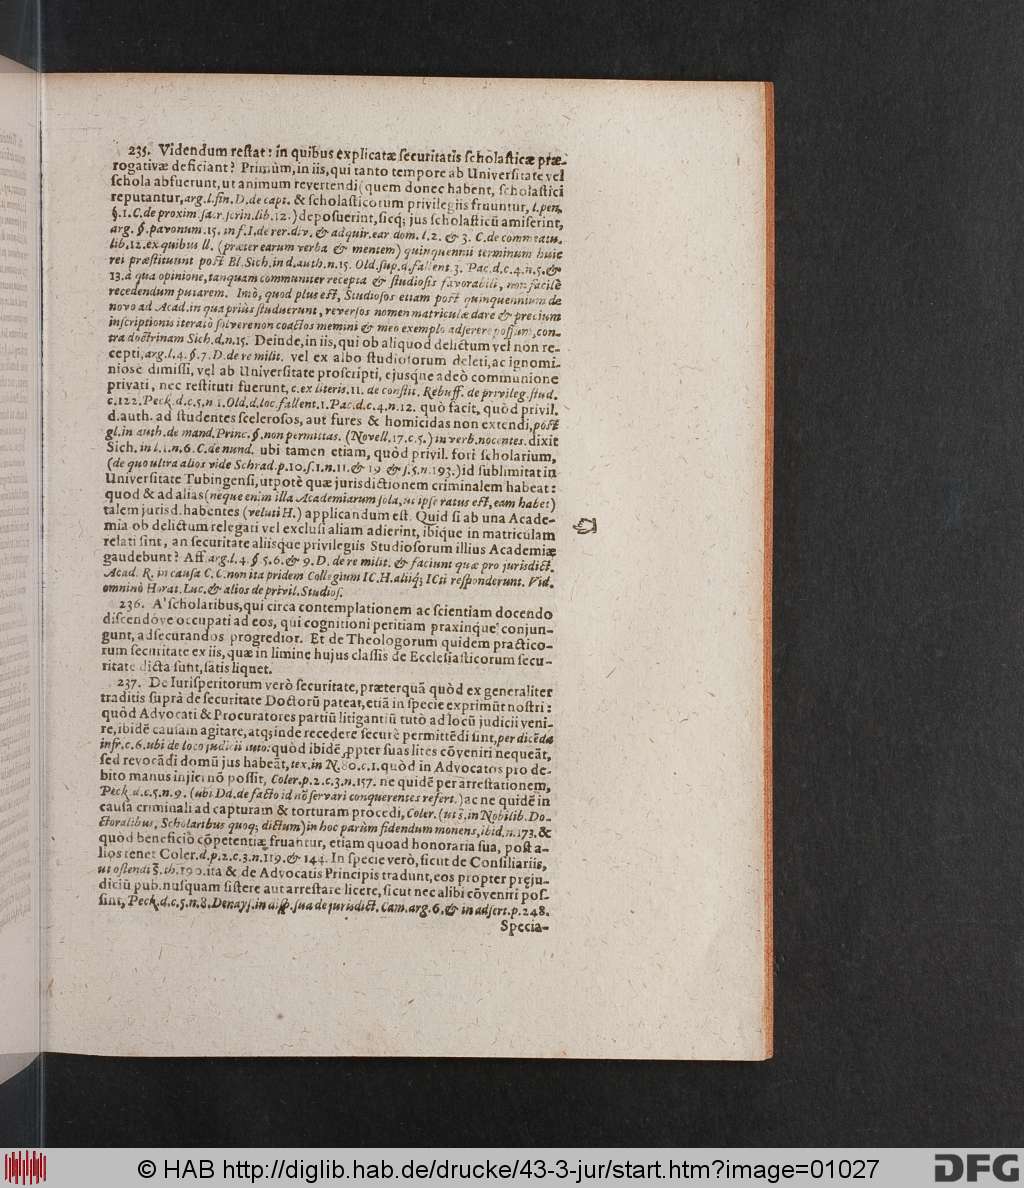 235. Videndum restat: in quibus explicatæ securitatis scholasticæ præ-
rogativæ deficiant? Primùm, in iis, qui tanto tempore ab Universitate vel
schola abfuerunt, ut animum revertendi (quem donec habent, scholastici
reputantur, arg. l. fin. D. de capt. & scholasticorum privilegiis fruuntur, l. pen.
§. 1. C. de proxim. sacr. scrin. lib. 12.) deposuerint, sicq; jus scholasticũ amiserint,
arg. §. pavonum. 15. in f. I. de rer. div. & adquir. ear dom. l. 2. & 3. C. de commeatu.
lib. 12. ex quibus ll. (præter earum verba & mentem) quinquennii terminum huic
rei præstituunt post Bl. Sich. in d. auth. n. 15. Old. sup. d. fallent. 3. Pac. d. c. 4. n. 5. &
13. à qua opinione, tanquam communiter recepta & studiosis favorabili, non facilè
recedendum putarem. Imò, quod plus est, Studiosos etiam post quinquennium de
novo ad Acad. in qua priùs studuerunt, reversos nomen matriculæ dare & precium
inscriptionis iteratò solvere non coactos memini & meo exemplo adserere possum, con-
tra doctrinam Sich. d. n. 15. Deinde, in iis, qui ob aliquod delictum vel non re-
cepti, arg. l. 4. §. 7. D. de re milit. vel ex albo studiosorum deleti, ac ignomi-
niosè dimissi, vel ab Universitate proscripti, ejusque adeò communione
privati, nec restituti fuerunt, c. ex literis. 11. de constit. Rebuff. de privileg. stud.
c. 122. Peck. d. c. 5. n. 1. Old. d. loc. fallent. 1. Pac. d. c. 4. n. 12. quò facit, quòd privil.
d. auth. ad studentes scelerosos, aut fures & homicidas non extendi, post
gl. in auth. de mand. Princ. §. non permittas. (Novell. 17. c. 5.) in verb. nocentes. dixit
Sich. in l. 1. n. 6. C. de nund. ubi tamen etiam, quòd privil. fori scholarium,
(de quo ultra alios vide Schrad. p. 10. s. 1. n. 11. & 19 & s. 5. n. 193.) id sublimitat in
Universitate Tubingensi, utpotè quæ jurisdictionem criminalem habeat:
quod & ad alias (neque enim illa Academiarum sola, ut ipse ratus est, eam habet)
talem jurisd. habentes (veluti H.) applicandum est. Quid si ab una Acade-
mia ob delictum relegati vel exclusi aliam adierint, ibique in matriculam
relati sint, an securitate aliisque privilegiis Studiosorum illius Academiæ
gaudebunt? Aff. arg. l. 4. §. 5. 6. & 9. D. de re milit. & faciunt quæ pro jurisdict.
Acad. R. in causa C. C. non ita pridem Collegium IC. H. aliiq; ICti responderunt. Vid.
omninò Horat. Luc. & alios de privil. Studios.
236. A' scholaribus, qui circa contemplationem ac scientiam docendo
discendove occupati ad eos, qui cognitioni peritiam praxinque conjun-
gunt, adsecurandos progredior. Et de Theologorum quidem practico-
rum securitate ex iis, quæ in limine hujus classis de Ecclesiasticorum secu-
ritate dicta sunt, satis liquet.
237. De Iurisperitorum verò securitate, præterquã quòd ex generaliter
traditis suprà de securitate Doctorũ pateat, etiã in specie exprimũt nostri:
quòd Advocati & Procuratores partiũ litigantiũ tutò ad locũ judicii veni-
re, ibidẽ causam agitare, atq; inde recedere securè permittẽdi sint, per dicẽda
infr. c. 6. ubi de loco judicii tuto: quòd ibidẽ ꝓpter suas lites cõveniri nequeãt,
sed revocãdi domũ jus habeãt, tex. in N. 80. c. 1. quòd in Advocatos pro de-
bito manus injici nõ possit, Coler. p. 2. c. 3. n. 157. ne quidẽ per arrestationem,
Peck. d. c. 5. n. 9. (ubi Dd. de facto id nõ servari conquerentes refert.) ac ne quidẽ in
causâ criminali ad capturam & torturam procedi, Coler. (ut s. in Nobilib. Do-
ctoralibus, Scholaribus quoq; dictum) in hoc parùm fidendum monens, ibid. n. 173. &
quòd beneficiò cõpetentiæ fruantur, etiam quoad honoraria sua, post a-
lios tenet Coler. d. p. 2. c. 3. n. 119. & 144. In specie verò, sicut de Consiliariis,
ut ostendi s. th. 190. ita & de Advocatis Principis tradunt, eos propter præju-
diciũ pub. nusquam sistere aut arrestare licere, sicut nec alibi cõveniri pos-
sint, Peck. d. c. 5. n. 8. Denays. in disp. sua de jurisdict. Cam. arg. 6. & in adsert. p. 248.
Specia-
© HAB http://diglib.hab.de/drucke/43-3-jur/start.htm?image=01027
DFG